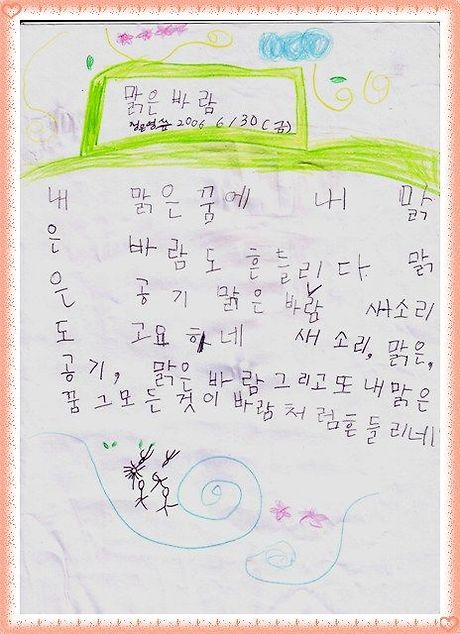 맑은 바람
2006 6/30(금)
내 맑은 꿈에 내 맑
은 바람도 흔들리다. 맑
은 공기 맑은 바람 새소리
도 고요하네 새소리, 맑은,
공기, 맑은 바람 그리고 또 내 맑은
꿈 그 모든 것이 바람처럼 흔들리네!